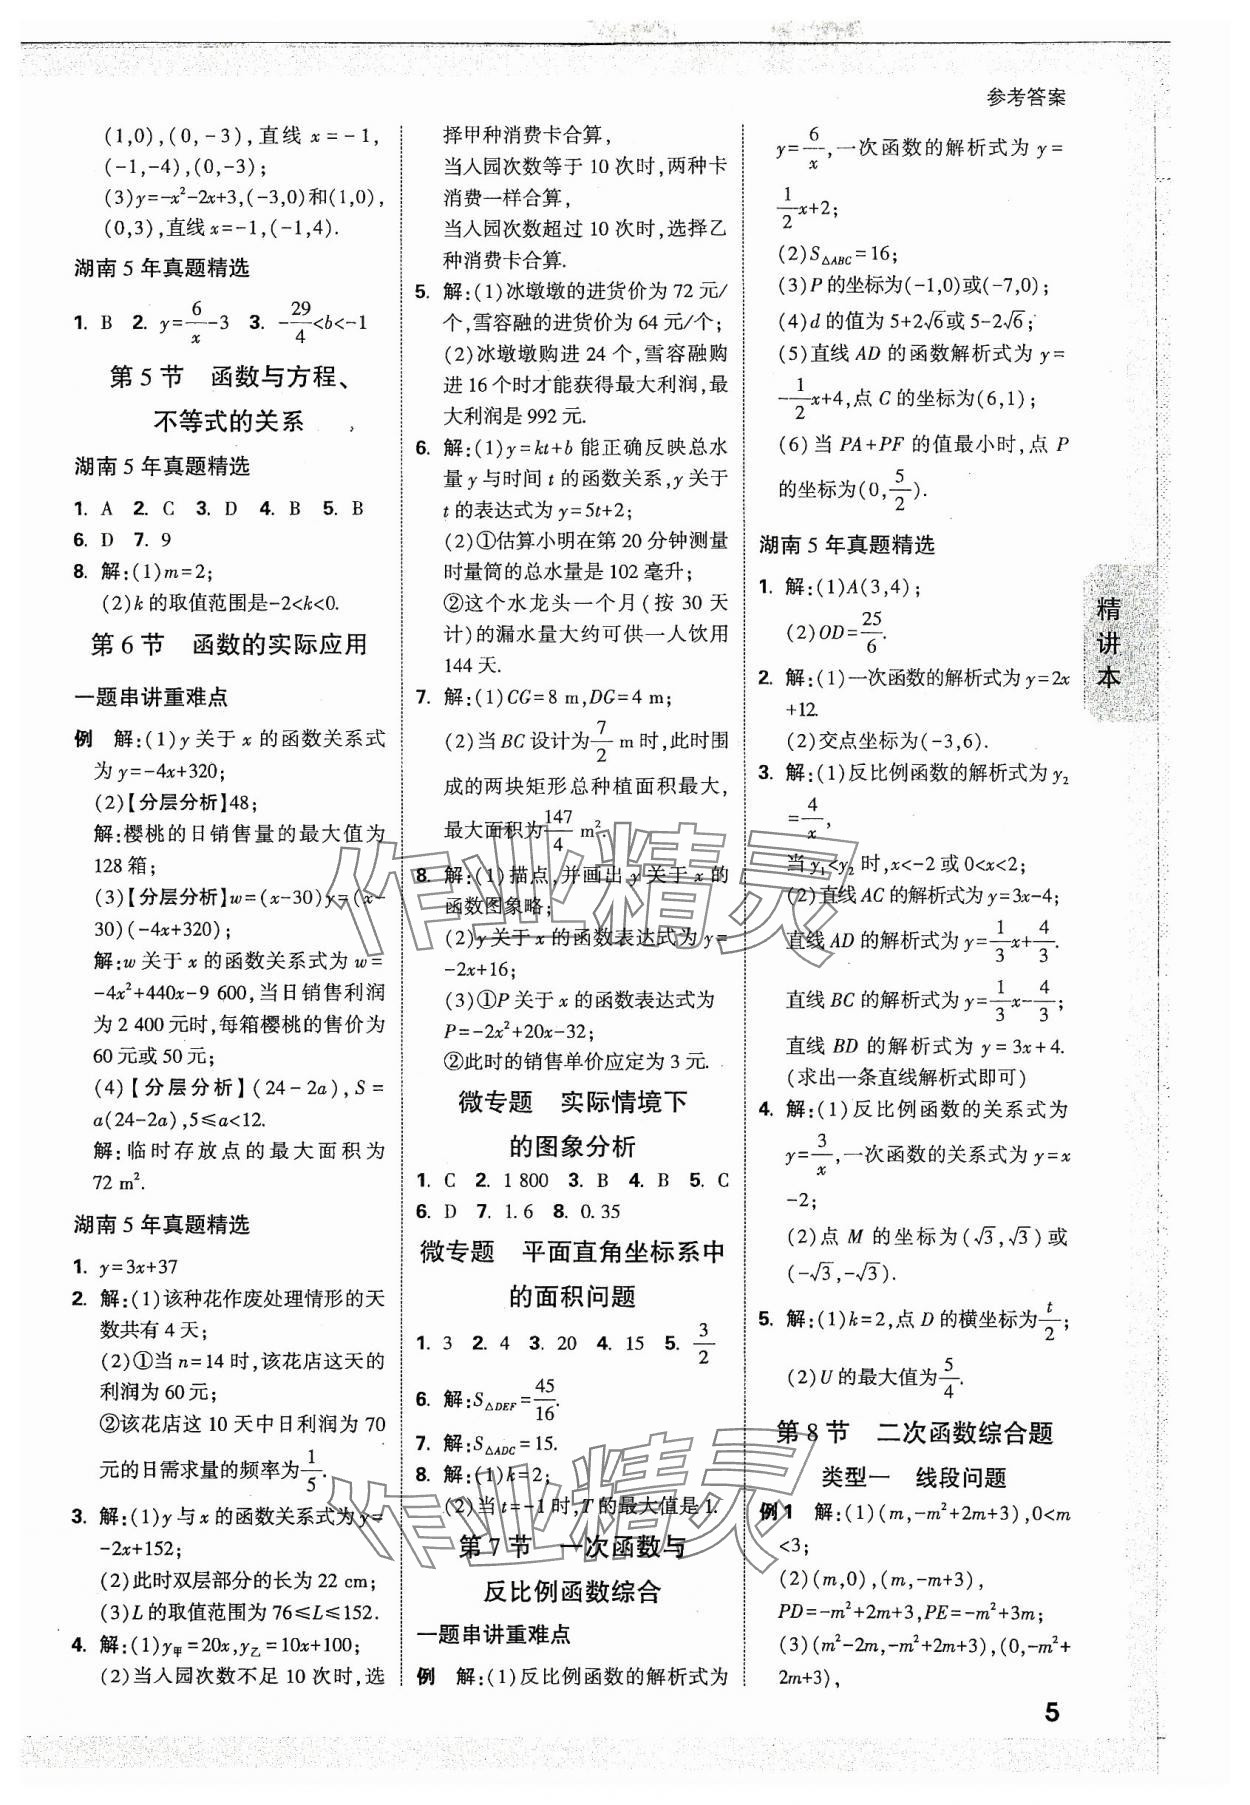 参考答案
(1,0),(0,-3),直线 x=-1,
(-1,-4),(0,-3);
(3)y=-x²-2x+3,(-3,0)和(1,0),
(0,3),直线 x=-1,(-1,4).
湖南5年真题精选
1. B 2. y=6/x-3 3. -29/4<b<-1
第5节 函数与方程、
不等式的关系
湖南5年真题精选
1. A 2. C 3. D 4. B 5. B
6. D 7. 9
8. 解:(1)m=2;
(2)k 的取值范围是-2<k<0.
第6节 函数的实际应用
一题串讲重难点
例 解:(1)y 关于 x 的函数关系式
为 y=-4x+320;
(2)【分层分析】48;
解:樱桃的日销售量的最大值为
128 箱;
(3)【分层分析】w=(x-30)y=(x-
30)(-4x+320);
解:w 关于 x 的函数关系式为 w=
-4x²+440x-9 600,当日销售利润
为 2 400 元时,每箱樱桃的售价为
60 元或 50 元;
(4)【分层分析】(24-2a),S=
a(24-2a),5≤a<12.
解:临时存放点的最大面积为
72 m².
湖南5年真题精选
1. y=3x+37
2. 解:(1)该种花作废处理情形的天
数共有 4 天;
(2)①当 n=14 时,该花店这天的
利润为 60 元;
②该花店这 10 天中日利润为 70
元的日需求量的频率为1/5.
3. 解:(1)y 与 x 的函数关系式为 y=
-2x+152;
(2)此时双层部分的长为 22 cm;
(3)L 的取值范围为 76≤L≤152.
4. 解:(1)y甲=20x,y乙=10x+100;
(2)当入园次数不足 10 次时,选
择甲种消费卡合算,
当入园次数等于 10 次时,两种卡
消费一样合算,
当入园次数超过 10 次时,选择乙
种消费卡合算.
5. 解:(1)冰墩墩的进货价为 72 元/
个,雪容融的进货价为 64 元/个;
(2)冰墩墩购进 24 个,雪容融购
进 16 个时才能获得最大利润,最
大利润是 992 元.
6. 解:(1)y=kt+b 能正确反映总水
量 y 与时间 t 的函数关系,y 关于
t 的表达式为 y=5t+2;
(2)①估算小明在第 20 分钟测量
时量筒的总水量是 102 毫升;
②这个水龙头一个月(按 30 天
计)的漏水量大约可供一人饮用
144 天.
7. 解:(1)CG=8 m,DG=4 m;
(2)当 BC 设计为7/2 m 时,此时围
成的两块矩形总种植面积最大,
最大面积为147/4 m².
8. 解:(1)描点,并画出 y 关于 x 的
函数图象略;
(2)y 关于 x 的函数表达式为 y=
-2x+16;
(3)①P 关于 x 的函数表达式为
P=-2x²+20x-32;
②此时的销售单价应定为 3 元.
微专题 实际情境下
的图象分析
1. C 2. 1 800 3. B 4. B 5. C
6. D 7. 1.6 8. 0.35
微专题 平面直角坐标系中
的面积问题
1. 3 2. 4 3. 20 4. 15 5. 3/2
6. 解:S△DEF=45/16.
7. 解:S△ADC=15.
8. 解:(1)k=2;
(2)当 t=-1 时,T 的最大值是 1.
第7节 一次函数与
反比例函数综合
一题串讲重难点
例 解:(1)反比例函数的解析式为
y=6/x,一次函数的解析式为 y=
1/2x+2;
(2)S△ABC=16;
(3)P 的坐标为(-1,0)或(-7,0);
(4)d 的值为 5+2√6或 5-2√6;
(5)直线 AD 的函数解析式为 y=
-1/2x+4,点 C 的坐标为(6,1);
(6)当 PA+PF 的值最小时,点 P
的坐标为(0,5/2).
湖南5年真题精选
1. 解:(1)A(3,4);
(2)OD=25/6.
2. 解:(1)一次函数的解析式为 y=2x
+12.
(2)交点坐标为(-3,6).
3. 解:(1)反比例函数的解析式为 y₂
=4/x,
当 y₁<y₂ 时,x<-2 或 0<x<2;
(2)直线 AC 的解析式为 y=3x-4;
直线 AD 的解析式为 y=1/3x+4/3.
直线 BC 的解析式为 y=1/3x-4/3;
直线 BD 的解析式为 y=3x+4.
(求出一条直线解析式即可)
4. 解:(1)反比例函数的关系式为
y=3/x,一次函数的关系式为 y=x
-2;
(2)点 M 的坐标为(√3,√3)或
(-√3,-√3).
5. 解:(1)k=2,点 D 的横坐标为t/2;
(2)U 的最大值为5/4.
第8节 二次函数综合题
类型一 线段问题
例1 解:(1)(m,-m²+2m+3),0<m
<3;
(2)(m,0),(m,-m+3),
PD=-m²+2m+3,PE=-m²+3m;
(3)(m²-2m,-m²+2m+3),(0,-m²+
2m+3),
精讲本
5
作业精灵
作业精灵